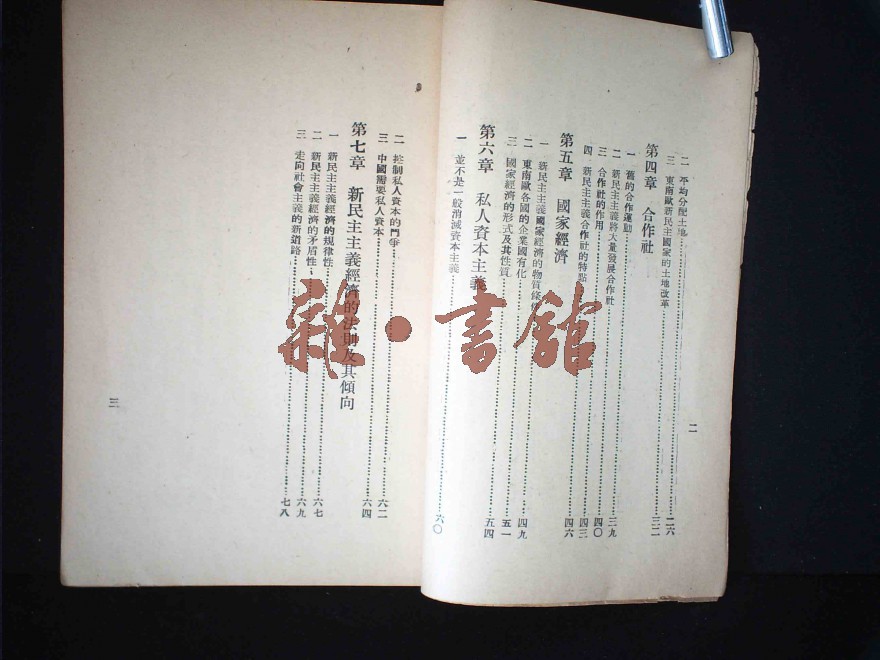 二 平均分配土地……二六
三 東南歐新民主國家的土地改革……三二
第四章 合作社
一 舊的合作運動……三九
二 新民主主義將大量發展合作社……四〇
三 合作社的作用……四三
四 新民主主義合作社的特點……四六
第五章 國家經濟
一 新民主主義國家經濟的物質條……四九
二 東南歐各國的企業國有化……五一
三 國家經濟的形式及其性質……五四
第六章 私人資本主義
一 並不是一般消滅資本主義……六〇
二
二 控制私人資本的鬥爭……六二
三 中國需要私人資本……六四
第七章 新民主主義經濟的法則及其傾向
一 新民主主義經濟的規律性……六七
二 新民主主義經濟的矛盾性……六九
三 走向社會主義的新道路……七八
三
雜·書館